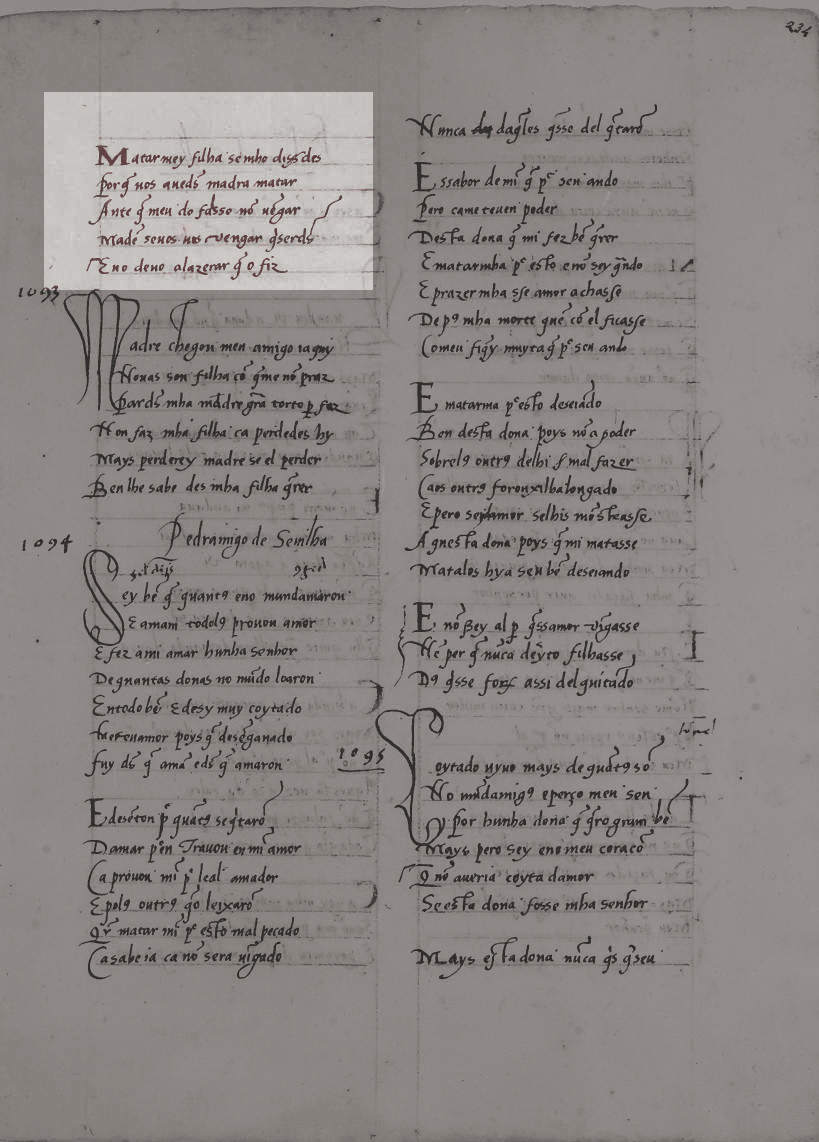 234
Matarmey filha semho dissedes
Porq̃ uos auedes madra matar
Ante q̃ meu do falsso nõ uẽgar
Madẽ senos uos vengar q̃serdes
Eno deuo alazerar q̃ o fiz
1093
Madre chegou meu amigo iaquy
Nouas son filha cõ q̃me nõ praz
Pardeꝰ mha madre grã torto ꝑ faz
Non faz mha filha ca perdedes hy
Mays perderey madre se el perder
Ben lhe sabe des mha filha q̃rer
1094
Pedramigo de Seuilha
Sey bẽ q̃ quantꝰ eno mundamaron
E amam todolꝰ prouou amor
E fez ami amar hunha senhor
De quantas donas no mũdo loaron
En todo bẽ E desy muy coytado
me tenamor poys q̃ desẽganado
fuy dꝰ q̃ amã edꝰ q̃ amaron
E deseton pᵉ quãtꝰ se q̃tarõ
Damar pᵉen Trauou en mĩ amor
Ca prouou mĩ pᵉ leal amador
E polꝰ outrꝰ q̃o leixarõ
Qᵉr matar mĩ pᵉ esto mal pecado
Ca sabe ia ca nõ sera uĩgado
Nunca daq̃les q̃sse del q̃tarõ
E ssabor de mĩ q̃ pᵉ seu ando
Pero cameteuen poder
Desta dona q̃ mi fez bẽ q̃rer
E matarmha pᵉ esto e nõ sey q̃ndo
E prazer mha sse amor achasse
De pꝰ mha morte quẽ cõ el ficasse
Comeu fiq̃y muyta q̃ pᵉ seu ando
E matarma pᵉ esto deseiãdo
Ben desta dona poys nõ a poder
Sobrelꝰ outrꝰ delhi mal fazer
Caos outrꝰ foronxilha longado
E pero seplamor selhis mostrasse
Aquesta dona poys q̃ mi matasse
Matalos hya seu bẽ deseiando
E nõ sey al p q̃ssamor uĩgasse
Nẽ per q̃ nũca dereyto filhasse
Dꝰ q̃sse forõ assi del quitãdo
1095
Coytado uyuo mays de quãtꝰ sõ
No mũdamigꝰ e perço meu sen
Por hunha dona q̃ q̃ro gram bẽ
Mays pero sey eno meu coraçõ
Q̃ nõ aueria coyta damor
Se esta dona fosse mha senhor
Mays esta dona nũca q̃s q̃ seu